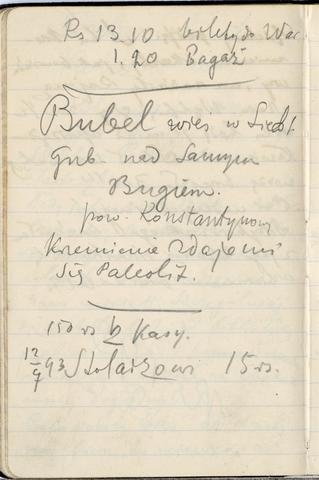 Rs 13.10 bilety do War
1.20 Bagaż
Bubel wieś w Siedl.
Gub nad samym
Bugiem.
pow. Konstantynow
Krzemienie zdaje mi
się Paleolit.
150 rs z Kasy.
12/9 93 Stolarzowi 15 rs.